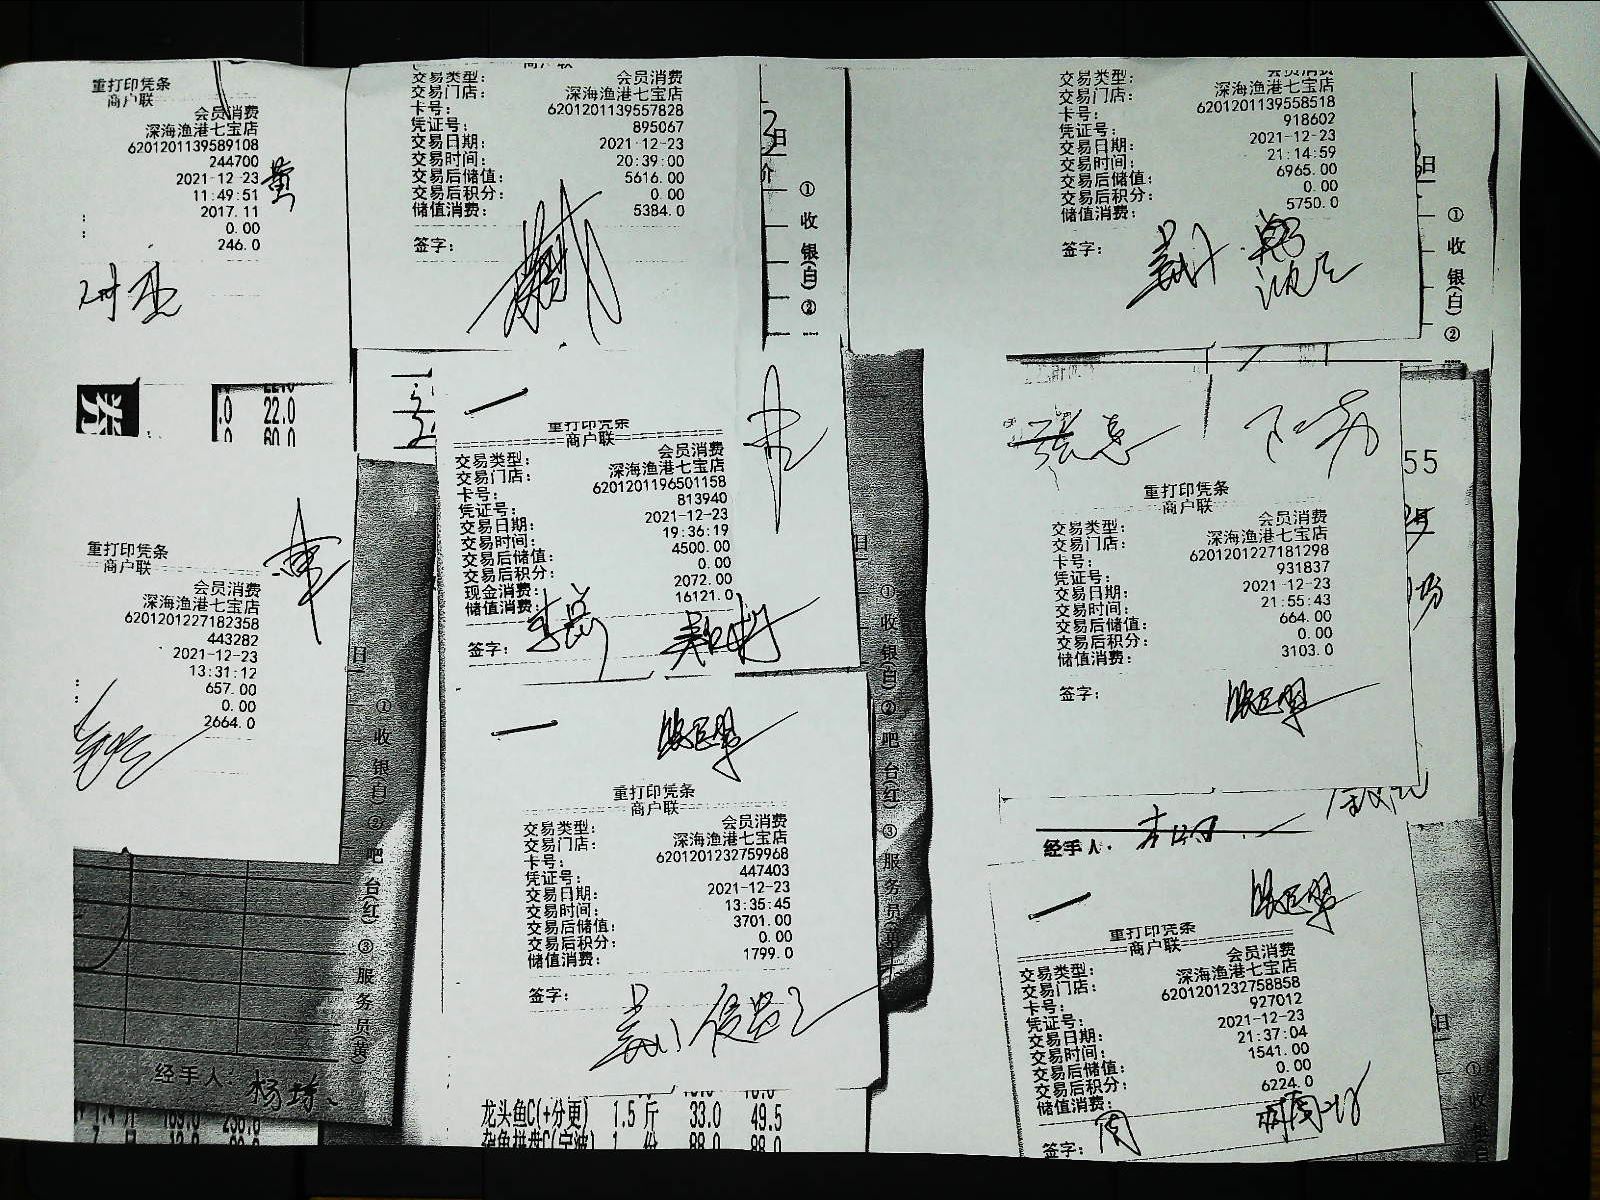 重打印凭条
商户联
会员消费
深海渔港七宝店
6201201139589108
244700
2021-12-23
11:49:51
2017.11
0.00
246.0
黄
22.0
60.0
重打印凭条
商户联
会员消费
深海渔港七宝店
6201201227182358
443282
2021-12-23
13:31:12
657.00
0.00
2664.0
日
①收银(白)②吧台(红)③服务员(黄)
经手人:
商户联
交易类型: 会员消费
交易门店: 深海渔港七宝店
卡号: 6201201139557828
凭证号: 895067
交易日期: 2021-12-23
交易时间: 20:39:00
交易后储值: 5616.00
交易后积分: 0.00
储值消费: 5384.0
签字:
日
价
①收银(白)②
重打印凭条
商户联
交易类型: 会员消费
交易门店: 深海渔港七宝店
卡号: 6201201196501158
凭证号: 813940
交易日期: 2021-12-23
交易时间: 19:36:19
交易后储值: 4500.00
交易后积分: 0.00
现金消费: 2072.00
储值消费: 16121.0
签字:
日
①收银(白)②吧台(红)③服务员(黄)
重打印凭条
商户联
交易类型: 会员消费
交易门店: 深海渔港七宝店
卡号: 6201201232759968
凭证号: 447403
交易日期: 2021-12-23
交易时间: 13:35:45
交易后储值: 3701.00
交易后积分: 0.00
储值消费: 1799.0
签字:
龙头鱼C(+分更) 1.5 斤 33.0 49.5
杂鱼拼盘C(宁波) 1 份 88.0 88.0
交易类型: 会员消费
交易门店: 深海渔港七宝店
卡号: 6201201139558518
凭证号: 918602
交易日期: 2021-12-23
交易时间: 21:14:59
交易后储值: 6965.00
交易后积分: 0.00
储值消费: 5750.0
签字:
日
①收银(白)②
55
重打印凭条
商户联
交易类型: 会员消费
交易门店: 深海渔港七宝店
卡号: 6201201227181298
凭证号: 931837
交易日期: 2021-12-23
交易时间: 21:55:43
交易后储值: 664.00
交易后积分: 0.00
储值消费: 3103.0
签字:
经手人:
重打印凭条
商户联
交易类型: 会员消费
交易门店: 深海渔港七宝店
卡号: 6201201232758858
凭证号: 927012
交易日期: 2021-12-23
交易时间: 21:37:04
交易后储值: 1541.00
交易后积分: 0.00
储值消费: 6224.0
签字:
日
①收银